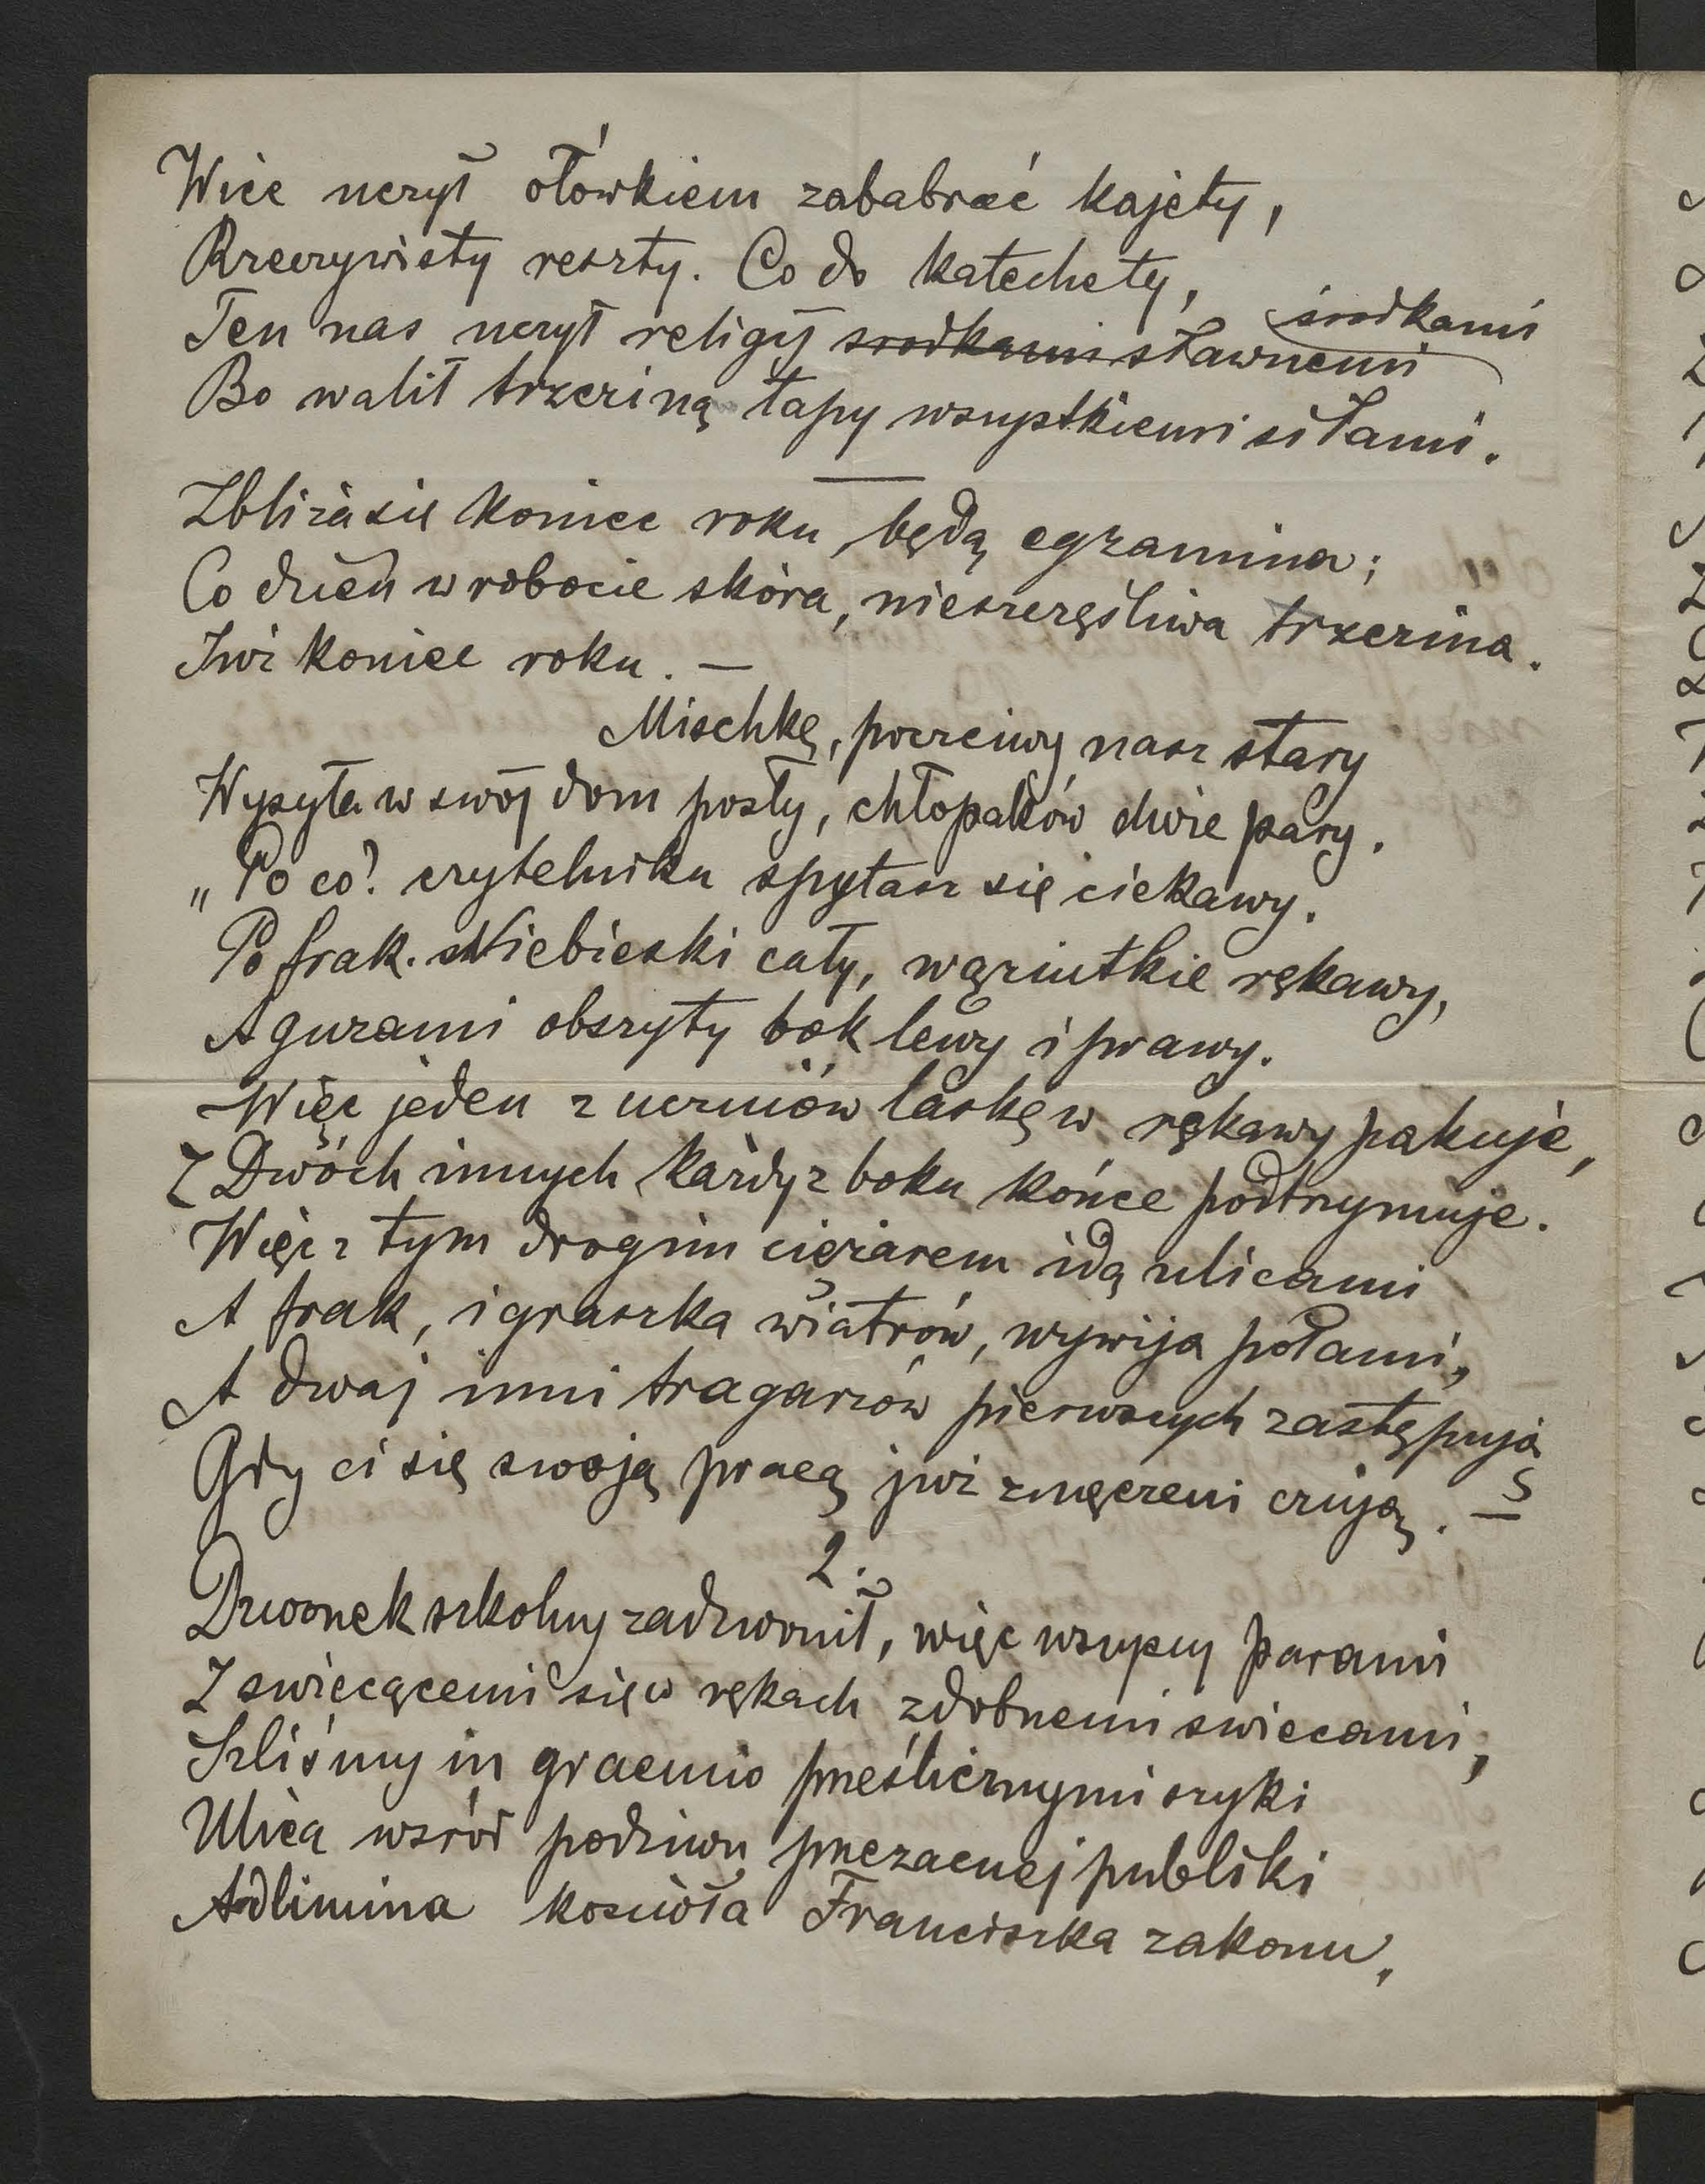 Więc uczył ołówkiem zababrać kajety,
Rzeczywisty reszty. Co do katechety,
Ten nas uczył religij srodkami sławnemi środkami
Bo walił trzciną łapy wszystkiemi siłami.
Zbliża się koniec roku, będą egzamina;
Co dzień w robocie skóra, nieszczęśliwa trzcina.
Już koniec roku. —
Mischkę, poczciwy nasz stary
Wysyła w swój dom posły, chłopaków dwie pary.
„Po co? czytelniku spytasz się ciekawy.
Po frak. Niebieski cały, wąziutkie rękawy,
A guzami obszyty bok lewy i prawy.
Więc jeden z uczniów laskę w rękawy pakuje,
Z Dwóch innych każdy z boku końce podtrzymuje.
Więc z tym drogim ciężarem idą ulicami
A frak, igraszka wiatrów, wywija połami,
A dwaj inni tragarzów pierwszych zastępują
Gdy ci się swoją pracą już zmęczeni czują. —
2.
Dzwonek szkolny zadzwonił, więc wszyscy parami
Z swiecącemi się w rękach zdobnemi swiecami,
Szliśmy in graemio prześlicznymi szyki
Ulicą wsród podziwu przezacnej publiki
Ad limina koscioła Franciszka zakonu,